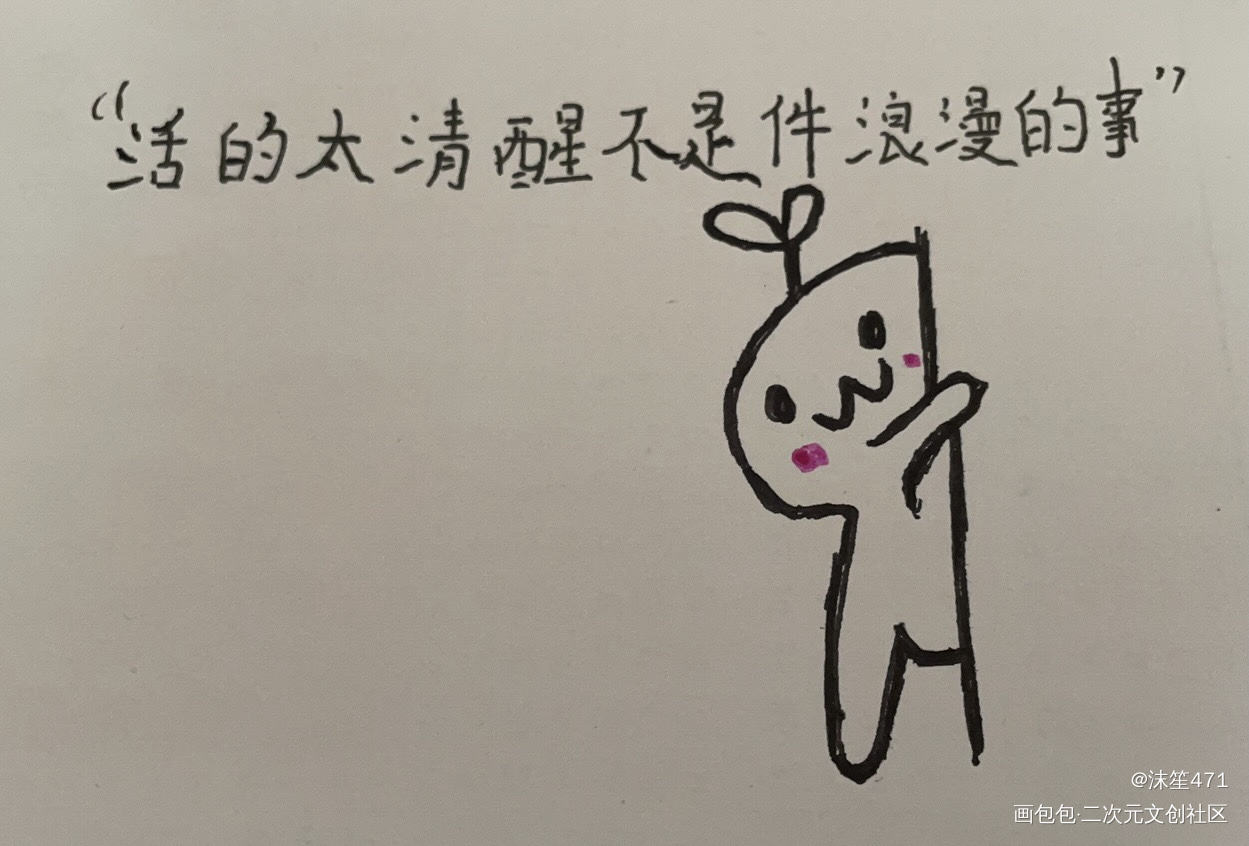 “活的太清醒不是件浪漫的事”
@沫笙471
画包包·二次元文创社区